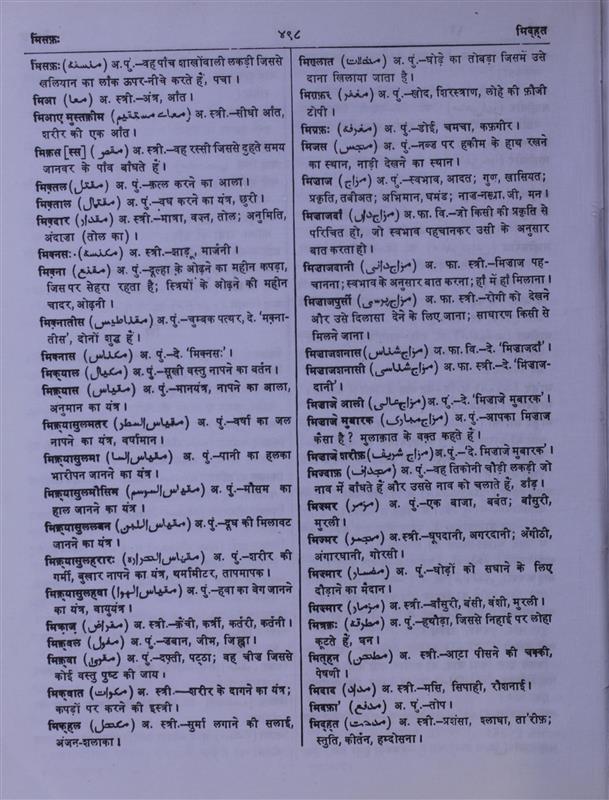 मिंसफ़ः
४९८
मिद्हत
मिंसफ़ः (منسفہ) अ. पुं.–वह पांच शाखोंवाली लकड़ी जिससे
खलियान का लांक ऊपर-नीचे करते हैं, पचा ।
मिआ (معا) अ. स्त्री.–अंत्र, आंत ।
मिआए मुस्तक़ीम (معاے مستقیم) अ. स्त्री.–सीधी आंत,
शरीर की एक आंत ।
मिक़स [स्स] (مقص) अ. स्त्री.–वह रस्सी जिससे दुहते समय
जानवर के पांव बांधते हैं ।
मिक़्तल (مقتل) अ. पुं.–क़त्ल करने का आला ।
मिक़्ताल (مقتال) अ. पुं.–वध करने का यंत्र, छुरी ।
मिक़्दार (مقدار) अ. स्त्री.–मात्रा, वज़्न, तोल; अनुमिति,
अंदाज़ा (तोल का) ।
मिक्नसः (مکنسہ) अ. स्त्री.–झाड़ू, मार्जनी ।
मिक़्ना (مقنع) अ. पुं.–दूल्हा के ओढ़ने का महीन कपड़ा,
जिस पर सेहरा रहता है; स्त्रियों के ओढ़ने की महीन
चादर, ओढ़नी ।
मिक़्नातीस (مقناطیس) अ. पुं.–चुम्बक पत्थर, दे. 'मक़्ना-
तीस', दोनों शुद्ध हैं ।
मिक्नास (مکناس) अ. पुं.–दे. 'मिक्नसः' ।
मिक्याल (مکیال) अ. पुं.–सूखी वस्तु नापने का बर्तन ।
मिक़्यास (مقیاس) अ. पुं.–मानयंत्र, नापने का आला,
अनुमान का यंत्र ।
मिक़्यासुलमतर (مقیاس المطر) अ. पुं.–वर्षा का जल
नापने का यंत्र, वर्षामान ।
मिक़्यासुलमा (مقیاس الما) अ. पुं.–पानी का हलका
भारीपन जानने का यंत्र ।
मिक़्यासुलमौसिम (مقیاس الموسم) अ. पुं.–मौसम का
हाल जानने का यंत्र ।
मिक़्यासुललबन (مقیاس اللبن) अ. पुं.–दूध की मिलावट
जानने का यंत्र ।
मिक़्यासुलहरारः (مقیاس الحرارہ) अ. पुं.–शरीर की
गर्मी, बुख़ार नापने का यंत्र, थर्मामीटर, तापमापक ।
मिक़्यासुलहवा (مقیاس الہوا) अ. पुं.–हवा का वेग जानने
का यंत्र, वायुयंत्र ।
मिक़्राज़ (مقراض) अ. स्त्री.–क़ैंची, कर्त्री, कर्तरी, कर्तनी ।
मिक़्वल (مقول) अ. पुं.–ज़बान, जीभ, जिह्वा ।
मिक़्वा (مقوی) अ. पुं.–दफ़्ती, पट्ठा; वह चीज़ जिससे
कोई वस्तु पुष्ट की जाय ।
मिक्वात (مکوات) अ. स्त्री.–शरीर के दाग़ने का यंत्र;
कपड़ों पर करने की इस्त्री ।
मिक्हल (مکحل) अ. स्त्री.–सुर्मा लगाने की सलाई,
अंजन-शलाका ।
मिख़्लात (مخلات) अ. पुं.–घोड़े का तोबड़ा जिसमें उसे
दाना खिलाया जाता है ।
मिग़्फ़र (مغفر) अ. पुं.–ख़ोद, शिरस्त्राण, लोहे की फ़ौजी
टोपी ।
मिग़्रफ़ः (مغرفہ) अ. पुं.–डोई, चमचा, कफ़गीर ।
मिजस (مجس) अ. पुं.–नब्ज़ पर हकीम के हाथ रखने
का स्थान, नाड़ी देखने का स्थान ।
मिज़ाज (مزاج) अ. पुं.–स्वभाव, आदत; गुण, ख़ासियत;
प्रकृति, तबीअत; अभिमान, घमंड; नाज़-नख़्रा, जी, मन ।
मिज़ाजदां (مزاج داں) अ. फ़ा. वि.–जो किसी की प्रकृति से
परिचित हो, जो स्वभाव पहचानकर उसी के अनुसार
बात करता हो ।
मिज़ाजदानी (مزاج دانی) अ. फ़ा. स्त्री.–मिज़ाज पह-
चानना; स्वभाव के अनुसार बात करना; हां में हां मिलाना ।
मिज़ाजपुर्सी (مزاج پرسی) अ. फ़ा. स्त्री.–रोगी को देखने
और उसे दिलासा देने के लिए जाना; साधारण किसी से
मिलने जाना ।
मिज़ाजशनास (مزاج شناس) अ. फ़ा. वि.–दे. 'मिज़ाजदां' ।
मिज़ाजशनासी (مزاج شناسی) अ. फ़ा. स्त्री.–दे. 'मिज़ाज-
दानी' ।
मिज़ाजे आली (مزاج عالی) अ. पुं.–दे. 'मिज़ाजे मुबारक' ।
मिज़ाजे मुबारक (مزاج مبارک) अ. पुं.–आपका मिज़ाज
कैसा है ? मुलाक़ात के वक़्त कहते हैं ।
मिज़ाजे शरीफ़ (مزاج شریف) अ. पुं.–'दे. मिज़ाजे मुबारक' ।
मिज्दाफ़ (مجداف) अ. पुं.–वह तिकोनी चौड़ी लकड़ी जो
नाव में बांधते हैं और उससे नाव को चलाते हैं, डांड़ ।
मिज़्मर (مزمر) अ. पुं.–एक बाजा, बर्बत; बांसुरी,
मुरली ।
मिज्मर (مجمر) अ. स्त्री.–धूपदानी, अगरदानी; अंगीठी,
अंगारधानी, गोरसी ।
मिज़्मार (مضمار) अ. पुं.–घोड़ों को सधाने के लिए
दौड़ाने का मैदान ।
मिज़्मार (مزمار) अ. स्त्री.–बांसुरी, बंसी, बंशी, मुरली ।
मित्रक़ः (مطرقہ) अ. पुं.–हथौड़ा, जिससे निहाई पर लोहा
कूटते हैं, घन ।
मित्हन (مطحن) अ. स्त्री.–आटा पीसने की चक्की,
पेषणी ।
मिदाद (مداد) अ. स्त्री.–मसि, सियाही, रौशनाई ।
मिद्फ़ा' (مدفع) अ. पुं.–तोप ।
मिद्हत (مدحت) अ. स्त्री.–प्रशंसा, श्लाघा, ता'रीफ़;
स्तुति, कीर्तन, हम्दोसना ।